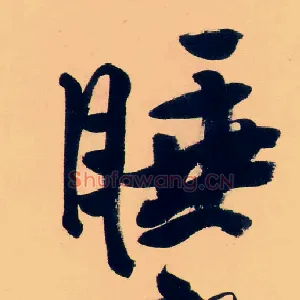 睡
Shufawang.CN